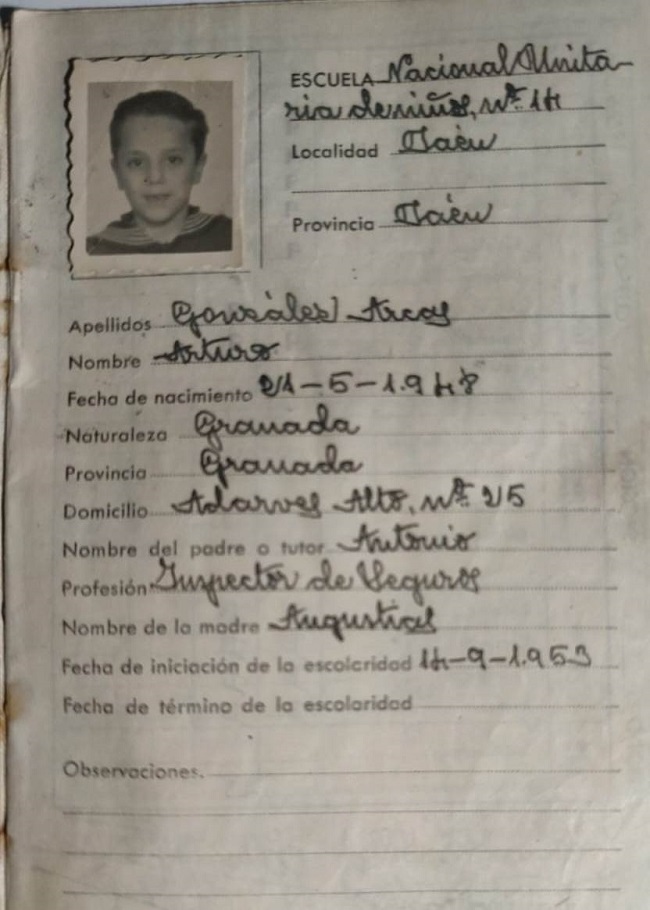 ESCUELA Nacional Unita-
ria de niños, nº 14
Localidad Jaén
Provincia Jaén
Apellidos González Arcas
Nombre Arturo
Fecha de nacimiento 21-5-1.948
Naturaleza Granada
Provincia Granada
Domicilio Adarves Alto, nº 25
Nombre del padre o tutor Antonio
Profesión Inspector de Seguros
Nombre de la madre Augustias
Fecha de iniciación de la escolaridad 14-9-1.953
Fecha de término de la escolaridad
Observaciones.